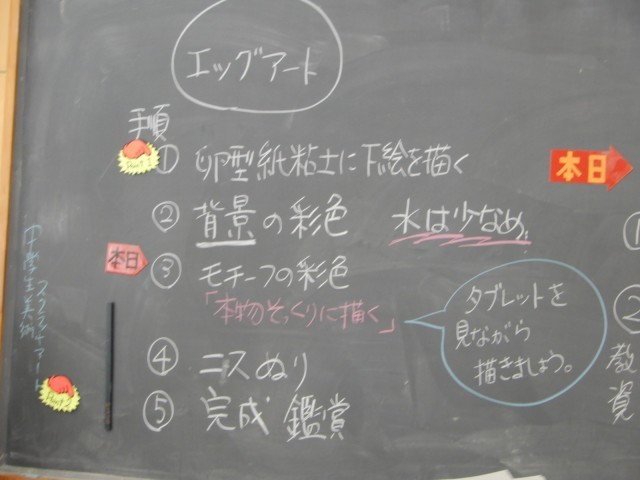 エッグアート
手順
① 卵型紙粘土に下絵を描く
② 背景の彩色 水は少なめ。
本日
③ モチーフの彩色
「本物そっくりに描く」
タブレットを
見ながら
描きましょう。
④ ニスぬり
⑤ 完成 鑑賞
本日
①
②
教
資
中学生美術
スクラッチアート